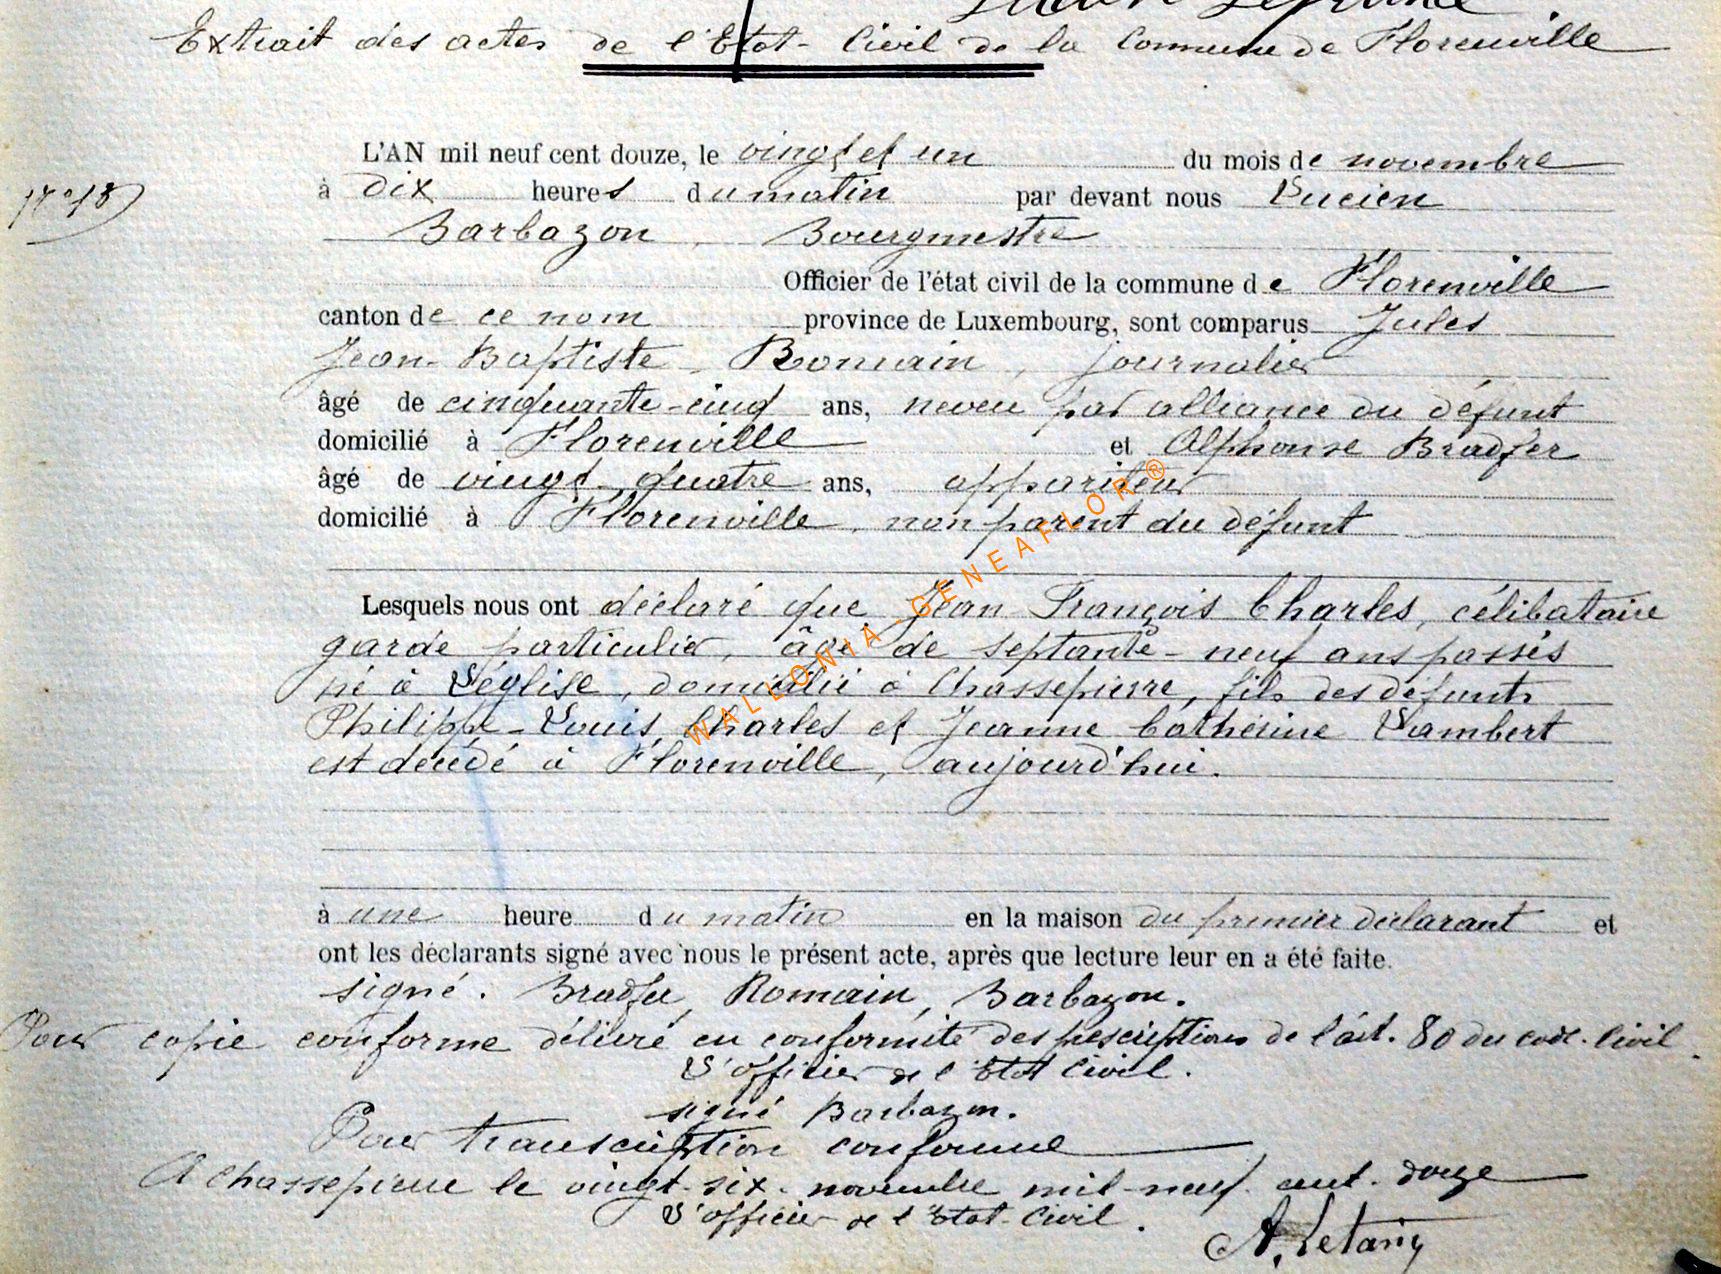 Extrait des actes de l'Etat-Civil de la Commune de Florenville
N° 18
L'AN mil neuf cent douze, le vingt et un du mois de novembre
à dix heures du matin par devant nous Lucien
Barbazon, Bourgmestre
Officier de l'état civil de la commune de Florenville
canton de ce nom province de Luxembourg, sont comparus Jules
Jean-Baptiste Romain, journalier
âgé de cinquante-cinq ans, neveu par alliance du défunt
domicilié à Florenville et Alphonse Bradfer
âgé de vingt-quatre ans, appariteur
domicilié à Florenville, non parent du défunt
Lesquels nous ont déclaré que Jean François Charles, célibataire
garde particulier, âgé de septante-neuf ans passés
né à Léglise, domicilié à Chassepierre, fils des défunts
Philippe-Louis Charles et Jeanne Cathérine Lambert
est décédé à Florenville, aujourd'hui.
à une heure du matin en la maison du premier déclarant et
ont les déclarants signé avec nous le présent acte, après que lecture leur en a été faite.
signé. Bradfer, Romain, Barbazon.
Pour copie conforme délivré en conformité des prescriptions de l'art. 80 du code civil.
L'officier de l'Etat Civil.
signé Barbazon.
Pour transcription conforme
A Chassepierre le vingt-six novembre mil-neuf cent douze
L'officier de l'Etat-Civil.
WALLONIA GENEAFLOR®